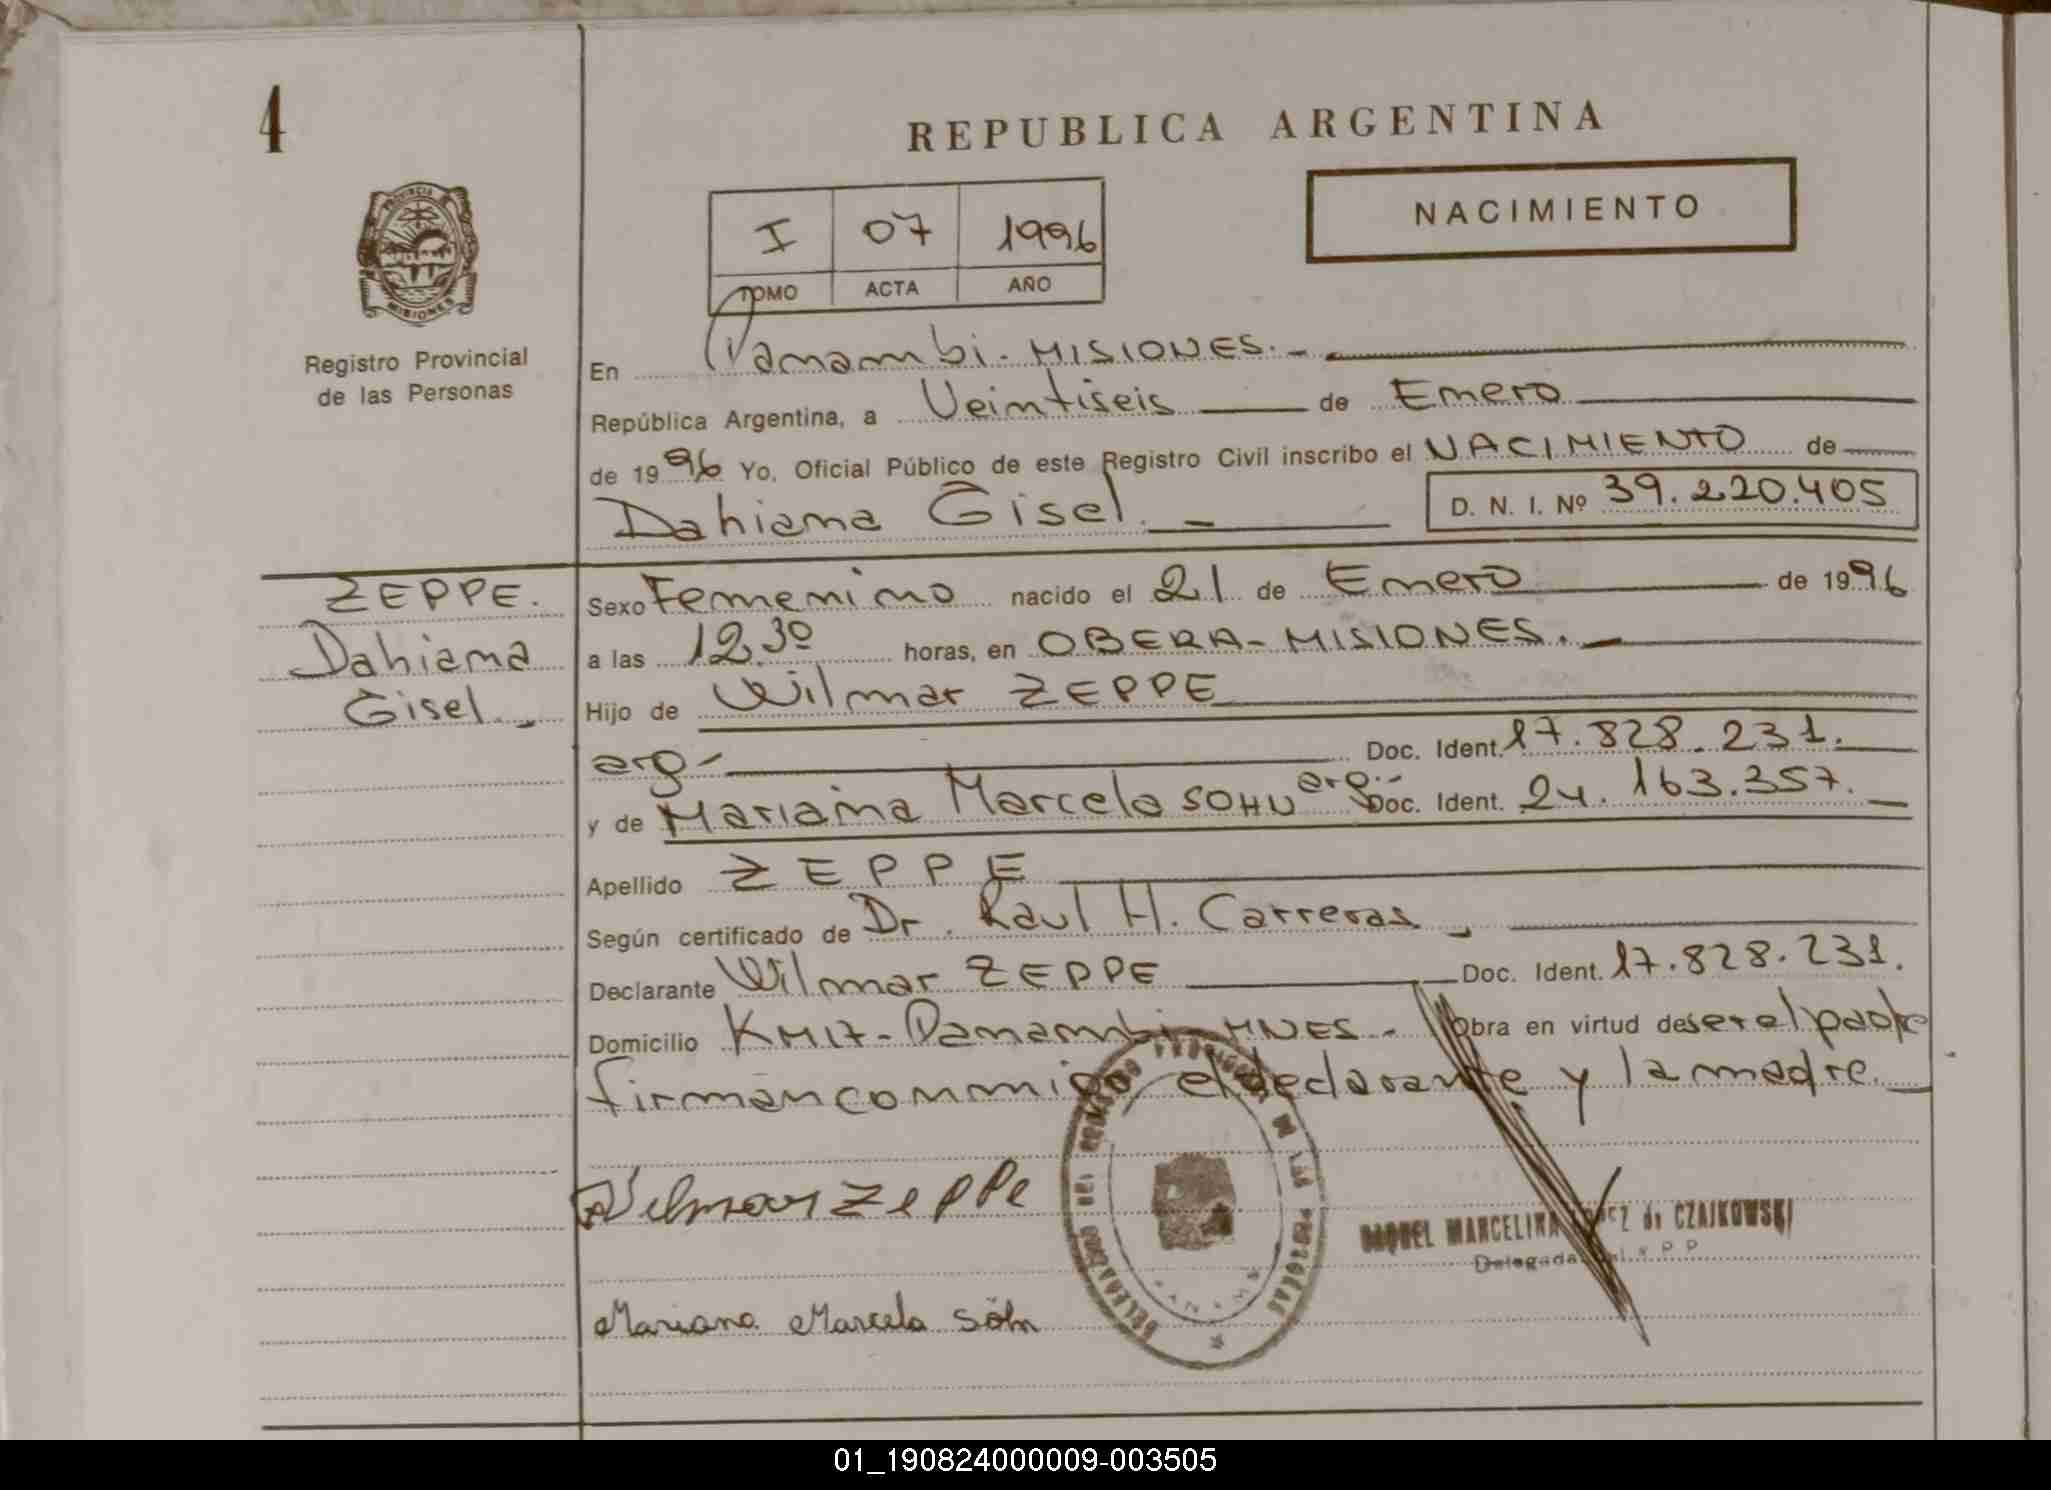 4
REPUBLICA ARGENTINA
NACIMIENTO
I 07 1996
TOMO ACTA AÑO
PROVINCIA DE
MISIONES
Registro Provincial
de las Personas
En Panambi - MISIONES. -
República Argentina, a Veintiseis de Enero
de 1996 Yo, Oficial Público de este Registro Civil inscribo el NACIMIENTO de
Dahiana Gisel. -
D. N. I. Nº 39.220.405
ZEPPE.
Dahiana
Gisel. -
Sexo Femenino nacido el 21 de Enero de 1996
a las 12.30 horas, en OBERA - MISIONES. -
Hijo de Wilmar ZEPPE
arg - Doc. Ident. 17.828.231.
y de Mariana Marcela SOHN arg.- Doc. Ident. 24.163.357. -
Apellido ZEPPE
Según certificado de Dr. Raul H. Carreras -
Declarante Wilmar ZEPPE Doc. Ident. 17.828.231.
Domicilio KM 17 - Panambi - MNES - Obra en virtud de ser el padre
firman conmigo el declarante y la madre. -
Wilmar Zeppe
DELEGACION DEL REGISTRO PROVINCIAL DE LAS PERSONAS
RAQUEL MARCELINA de CZAJKOWSKI
Delegada R P P
Mariana Marcela Söhn
01_190824000009-003505